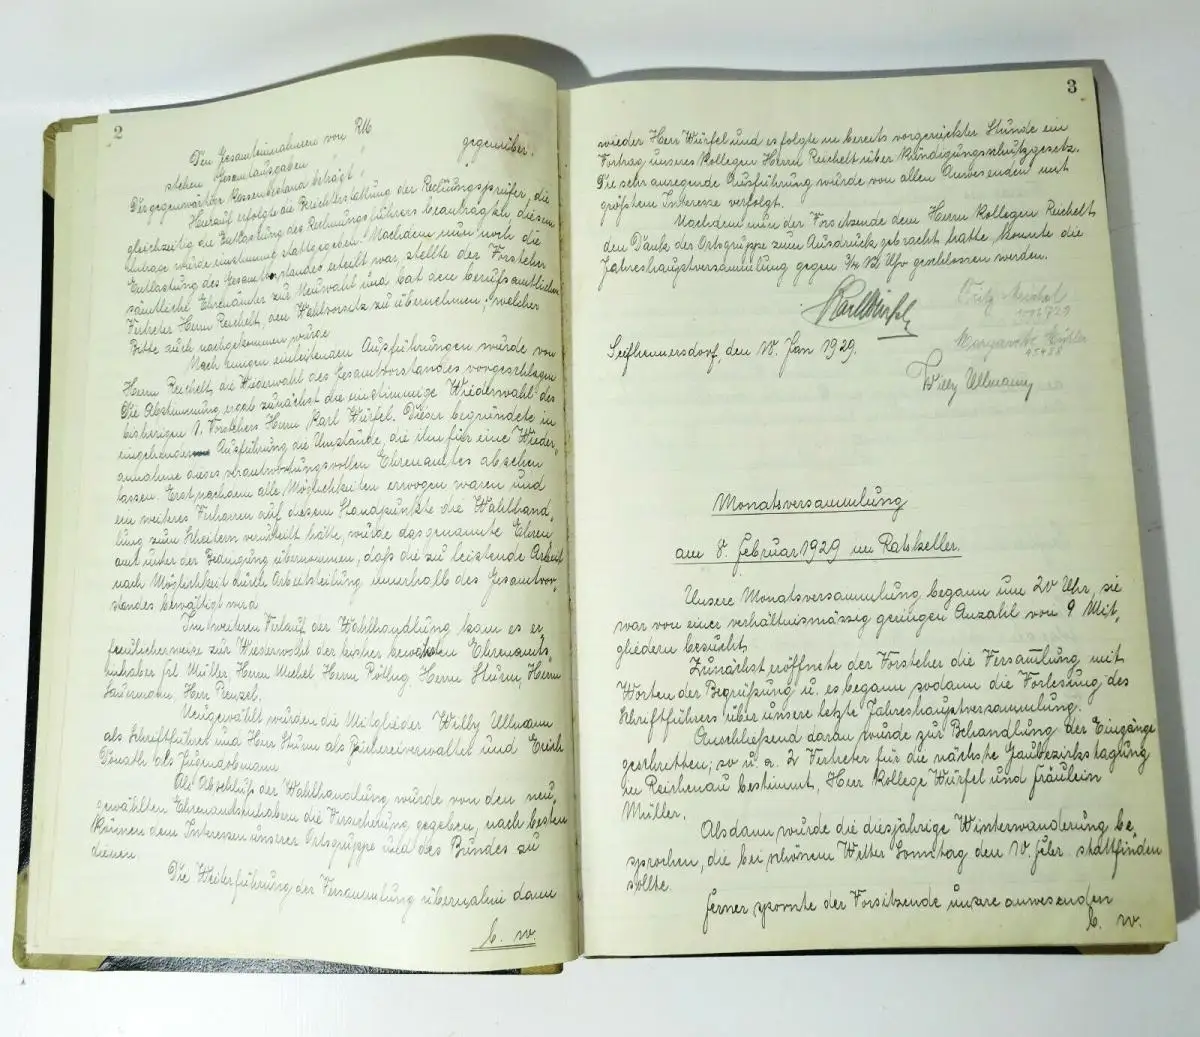 2
Den Gesamteinnahmen von RM
stehen Gesamtausgaben " " gegenüber.
Der gegenwärtige Kassenbestand beträgt "
Hierauf erfolgte die Berichterstattung der Rechnungsprüfer, die
gleichzeitig die Entlastung des Rechnungsführers beantragten, diesem
Antrage wurde einstimmig stattgegeben. Nachdem nun noch die
Entlastung des Gesamtvorstandes erteilt war, stellte der Vorsteher
sämtliche Ehrenämter zur Neuwahl und bat den berufsamtlichen
Vertreter Herrn Reichelt, den Wahlvorsitz zu übernehmen, welcher
Bitte auch nachgekommen wurde.
Nach einigen einleitenden Ausführungen wurde von
Herrn Reichelt die Wiederwahl des Gesamtvorstandes vorgeschlagen
Die Abstimmung ergab zunächst die einstimmige Wiederwahl des
bisherigen 1. Vorstehers Herrn Karl Würfel. Dieser begründete in
eingehender Ausführung die Umstände, die ihn für eine Wieder-
annahme dieses verantwortungsvollen Ehrenamtes absehen
lassen. Erst nachdem alle Möglichkeiten erwogen waren und
ein weiteres Verharren auf diesem Standpunkte die Wahlhand-
lung zum Scheitern verurteilt hätte, wurde das genannte Ehren
amt unter der Bedingung übernommen, daß die zu leistende Arbeit
nach Möglichkeit durch Arbeitsteilung innerhalb des Gesamtvor-
standes bewältigt wird
Im weiteren Verlauf der Wahlhandlung kam es er-
freulicherweise zur Wiederwahl der bisher bewährten Ehrenamts-
inhaber Frl. Müller, Herrn Michel Herrn Herrn Sturm, Herrn
Sauermann, Herr Penzel.
Neugewählt wurden die Mitglieder Willy Ullmann
als Schriftführer und Herr Sturm als Büchereiverwalter und Erich
Donath als Jugendobmann
Als Abschluß der Wahlhandlung wurde von den neu-
gewählten Ehrenamtsinhabern die Versicherung gegeben, nach besten
Können dem Interessen unserer Ortsgruppe und des Bundes zu
dienen.
Die Weiterführung der Versammlung übernahm dann
b. w.
3
wieder Herr Würfel und es folgte in bereits vorgerückter Stunde ein
Vortrag unseres Kollegen Herrn Reichelt über Kündigungsschutzgesetz.
Die sehr anregende Ausführung wurde von allen Anwesenden mit
größtem Interesse verfolgt.
Nachdem nun der Vorsitzende dem Herrn Kollegen Reichelt
den Dank der Ortsgruppe zum Ausdruck gebracht hatte, konnte die
Jahreshauptversammlung gegen 3/4 12 Uhr geschlossen werden.
Karl Würfel
Seifhennersdorf, den 10. Jan 1929.
Fritz Michel
Margarethe Müller
45488
Willy Ullmann
Monatsversammlung
am 8. Februar 1929 im Ratskeller.
Unsere Monatsversammlung begann um 20 Uhr, sie
war von einer verhältnismässig geringen Anzahl von 9 Mit-
gliedern besucht.
Zunächst eröffnete der Vorsteher die Versamlung mit
Worten der Begrüßung u. es begann sodann die Vorlesung des
Schriftführers über unsere letzte Jahreshauptversammlung.
Anschließend daran wurde zur Behandlung der Eingänge
geschritten; so u. a. 2 Vertreter für die nächste Gaubezirkstagung
in Reichenau bestimmt, Herr Kollege Würfel und Fräulein
Müller.
Alsdann wurde die diesjährige Winterwanderung be-
sprochen, die bei schönem Wetter Sonntag den 10. Febr. stattfinden
sollte.
Ferner spornte der Vorsitzende unsre anwesenden
b. w.